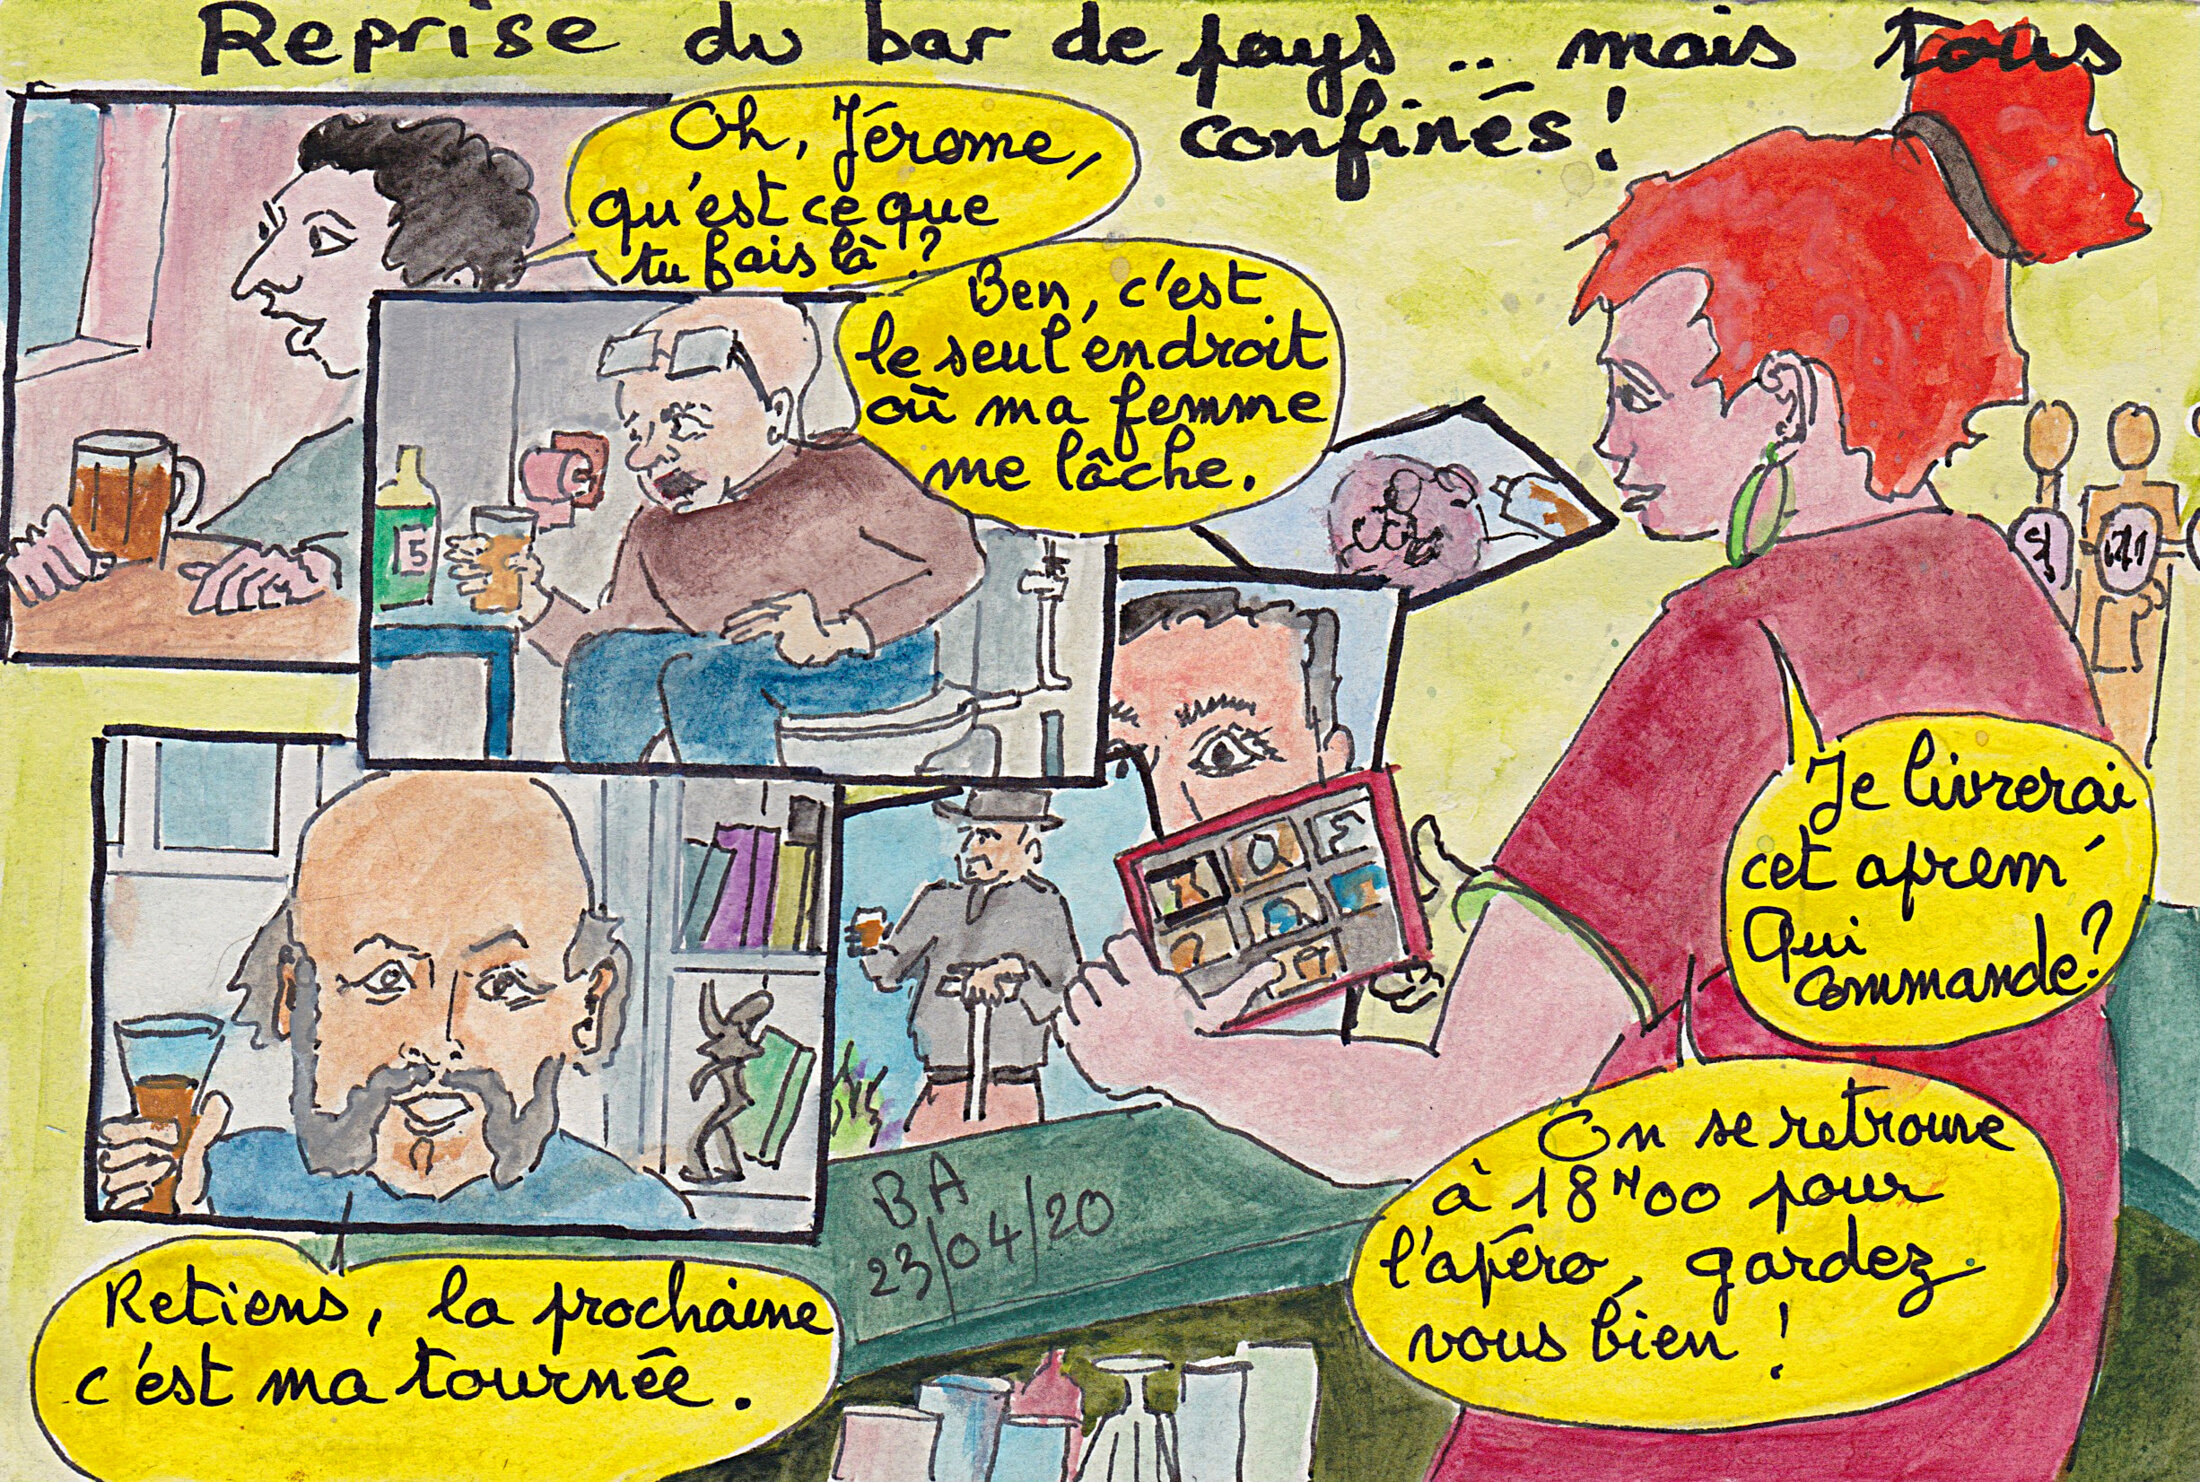 Reprise du bar de pays .. mais tous
confinés !
Oh, Jérome,
qu'est ce que
tu fais là ?
Ben, c'est
le seul endroit
où ma femme
me lâche.
5
Je livrerai
cet aprem'
Qui
commande ?
On se retrouve
à 18H00 pour
l'apéro, gardez
vous bien !
Retiens, la prochaine
c'est ma tournée.
BA
23/04/20